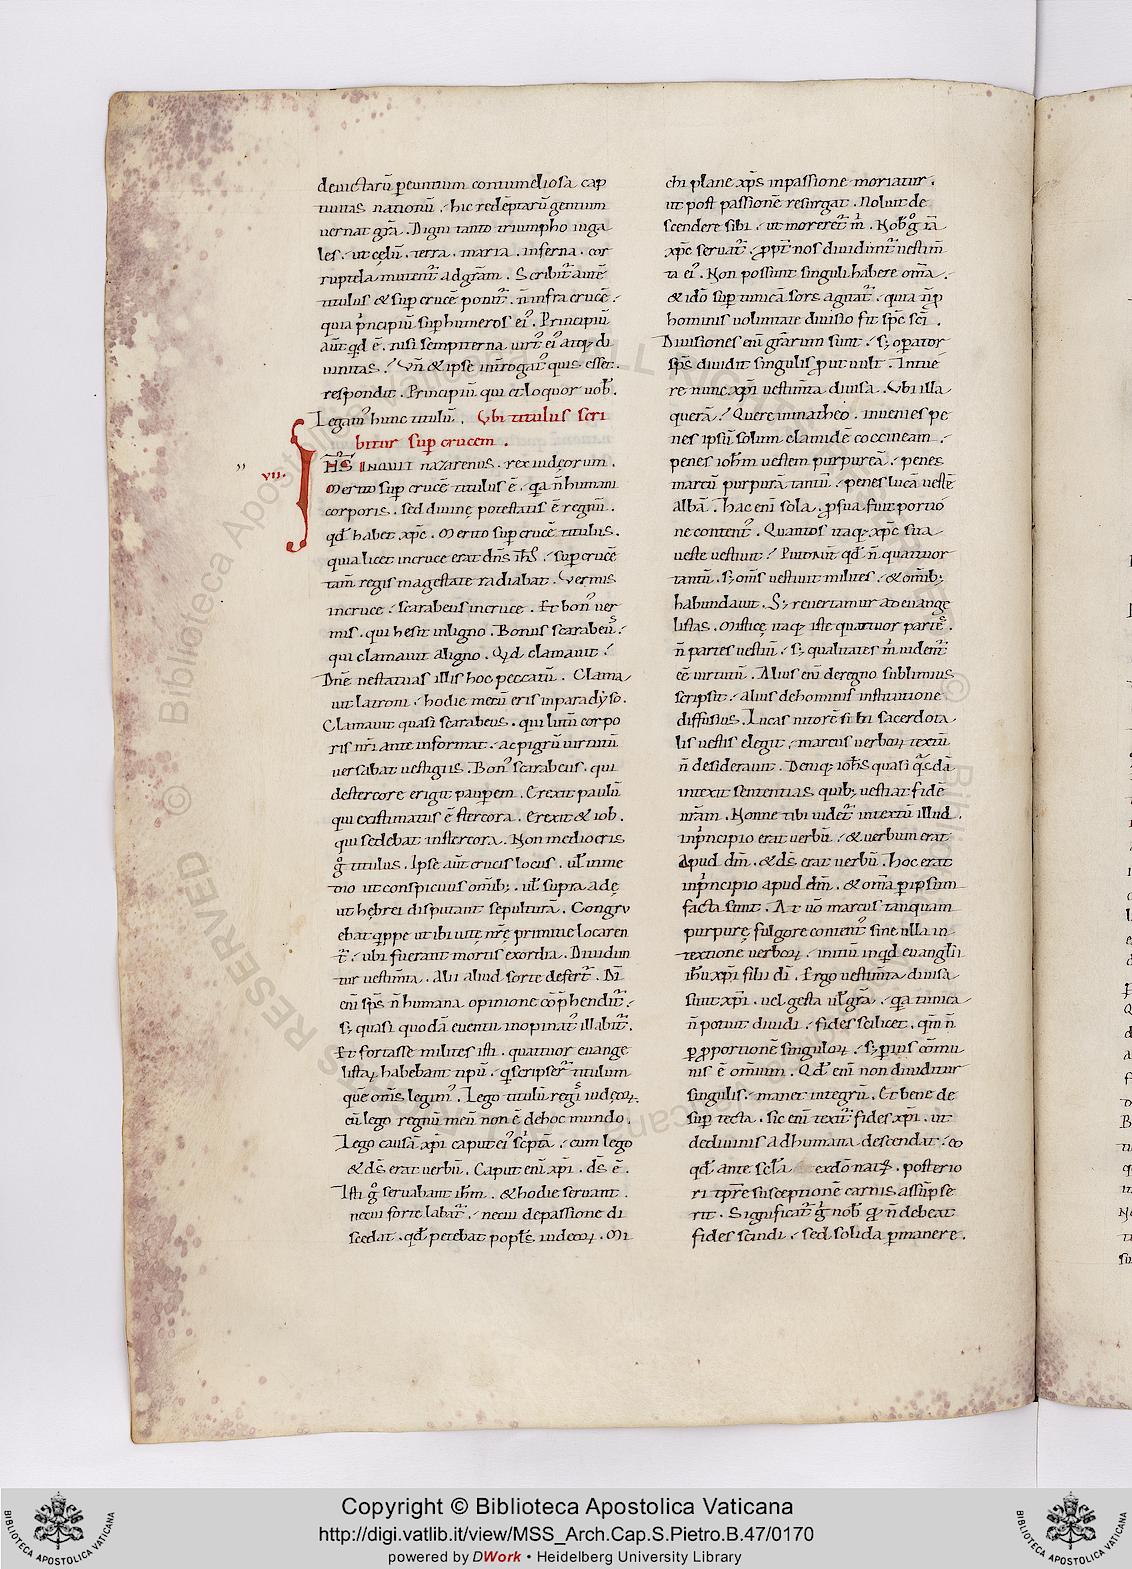 deuictarũ ꝑeuntium contumeliosa cap
tiuitas nationũ . hic redẽptarũ gentium
uernat gr̃a . Digni tanto triumpho iuga
les . ut cęlũ . terra . maria . inferna . cor
ruptela mutent̃ ad gr̃am . Scribit̃ autẽ
titulus & suꝑ crucẽ ponit̃ . ñ infra crucẽ .
quia p̃ncipiũ suꝑ humeros ei᾽ . Principiũ
aũt qd̃ ẽ . nisi sempiterna uirt᾽ ei᾽ atq; di
uinitas . Vñ & ipse int̃rogat᾽ quis esset .
respondit . Principiũ qui et loquor uob̃ .
Legam᾽ hunc titulũ . Vbi titulus scri
bitur suꝑ crucem .
vii. IH̃S INQUIT nazarenus . rex iudęorum .
Merito suꝑ crucẽ titulus ẽ . qa ñ humani
corporis . sed diuinę potestatis ẽ regnũ .
qd̃ habet xp̃c . Merito suꝑ crucẽ titulus .
quia licet in cruce erat dñs ih̃s . suꝑ crucẽ
tam̃ regis magestate radiabat . Vermis
in cruce . scarabeus in cruce . Et bon᾽ uer
mis . qui hesit in ligno . Bonus scarabeus .
qui clamauit a ligno . Qd̃ clamauit .
Dñe ne statuas illis hoc peccatũ . Clama
uit latroni . hodie mecũ eris in paradyso .
Clamauit quasi scarabeus . qui lutũ corpo
ris nr̃i ante informat . ac pigrũ uirtutũ
uersabat uestigiis . Bon᾽ scarabeus . qui
de stercore erigit pauꝑem . Erexit paulũ
qui existimatus ẽ stercora . Erexit & iob .
qui sedebat in stercora . Non mediocris
g̊ titulus . Ipse aũt crucis locus . ul̃ in me
dio ut conspicuus om̃ib; . ul̃ supra adę
ut hębrei disputant sepulturã . Congru
ebat q̃ppe ut ibi uitę nr̃ę primitie locaren
t̃ . ubi fuerant mortis exordia . Diuidun
tur uestim̃ta . Alii aliud sorte defert̃ . Dĩ
eni sp̃s ñ humana opinione cõp̃hendit̃ .
s; quasi quodã euentu inopinat᾽ illabit̃ .
Et fortasse milites isti . quattuor euange
listaꝝ habebant tipũ . q̃ scripser̃ titulum
quẽ om̃s legim᾽ . Lego titulũ regis iudęoꝝ .
cũ lego regnũ meũ non ẽ de hoc mundo .
Lego causã xp̃i caput ei᾽ sc̃ptã . cum lego
& ds̃ erat uerbũ . Caput eni xp̃i . ds̃ ẽ .
Isti g̊ seruabant ih̃m . & hodie seruant .
necui sorte labat̃ . necui de passione di
scedat . qd̃ petebat popl̃s iudeoꝝ . Mi
chi plane xp̃s in passione moriatur .
ut post passionẽ resurgat . Noluit de
scendere sibi . ut moreret̃ m̃ .
xp̃c seruat̃ . ꝓpt̃ nos diuidunt̃ uestim̃
ta ei᾽ . Non possunt singuli habere om̃a .
& idõ suꝑ tunicã sors agitat̃ . quia ñ ꝓ
hominis uoluntate diuisio fit sp̃c sc̃i .
Diuisiones eni gr̃arum sunt . s; oꝑator
sp̃s diuidit singulis ꝓut uult . Intue
re nunc xp̃i uestim̃ta diuisa . Vbi illa
querã . Quere in matheo . inuenies pe
nes ipsũ solum clamidẽ coccineam .
penes ioh̃m uestem purpureã . penes
marcũ purpurã tantũ . penes lucã uestẽ
albã . hac eni sola . ꝓ sua fuit portio
ne content᾽ . Quantos itaq; xp̃c sua
ueste uestiuit . Puto aũt qd̃ ñ quattuor
tantũ . s; om̃s uestiuit milites . & om̃ib;
habundauit . S; reuertamur ad euange
listas . Misticę itaq; iste quattuor partes .
ñ partes uestiũ . s; qualitates m̃ uident̃
eẽ uirtutũ . Alius eni de regno sublimius
scripsit . alius de hominis institutione
diffusius . Lucas nitorẽ sibi sacerdota
lis uestis elegit . marcus uerboꝝ textũ
ñ desiderauit . Deniq; ioh̃s quasi qsdã
intexit sententias quib; uestiat fidẽ
nr̃am . Nonne tibi uidet̃ intextũ illud .
in p̃ncipio erat uerbũ . & uerbum erat
apud dm̃ . & ds̃ erat uerbũ . hoc erat
in p̃ncipio apud dm̃ . & om̃a ꝑ ipsum
facta sunt . At uõ marcus tanquam
purpurę fulgore content᾽ sine ulla in
textione uerboꝝ . initiũ inqd euanglii
ih̃u xp̃i filii dĩ . Ergo uestim̃ta diuisa
sunt xp̃i . uel gesta ul̃ gr̃a . qa tunica
ñ potuit diuidi . fides scilicet . qm̃ ñ
ꝑ ꝓportionẽ singuloꝝ . s; ꝑ ius cõmu
nis ẽ omnium . Qd̃ eni non diuiditur
singulis . manet integrũ . Et bene de
suꝑ texta . sic eni texit̃ fides xp̃i . ut
de diuinis ad humana descendat . eo
qd̃ ante scl̃a ex dõ nat᾽ . posterio
ri tp̃re susceptionẽ carnis assũpse
rit . Significat̃ g̊ nob̃ ñ debeat
fides scindi . sed solida ꝑmanere .
Copyright © Biblioteca Apostolica Vaticana
http://digi.vatlib.it/view/MSS_Arch.Cap.S.Pietro.B.47/0170
powered by DWork • Heidelberg University Library